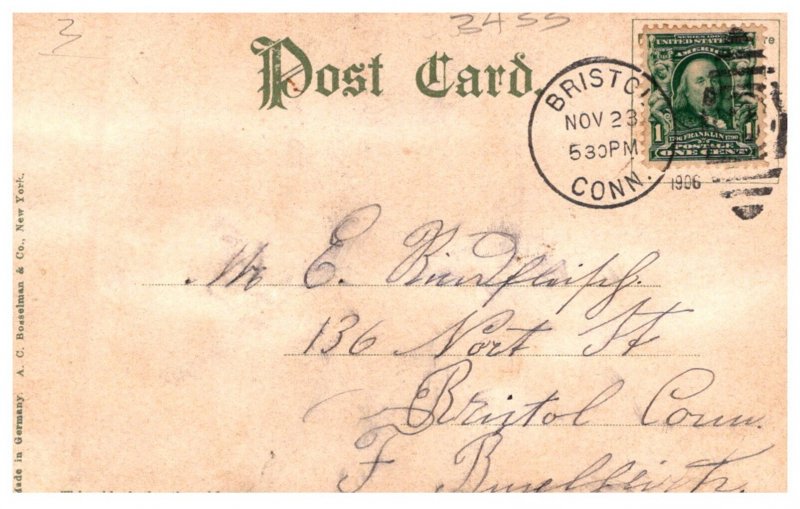 3
3455
Post Card.
SERIES 1902
UNITED STATES OF
AMERICA
1 1706 FRANKLIN 1790 1
POSTAGE
ONE CENT
BRISTOL
NOV 23
530PM
CONN.
1906
Mr E. Rindfleisch.
136 Nort St
Bristol Conn.
F
Made in Germany. A. C. Bosselman & Co., New York.